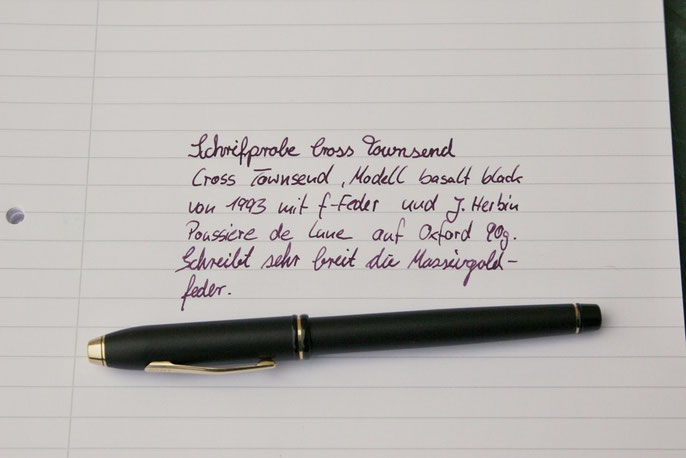 Schrifprobe Cross Townsend
Cross Townsend, Modell basalt black
von 1993 mit f-Feder und J. Herbin
Poussiere de Lune auf Oxford 90g.
Schreibt sehr breit die Massivgold-
feder.